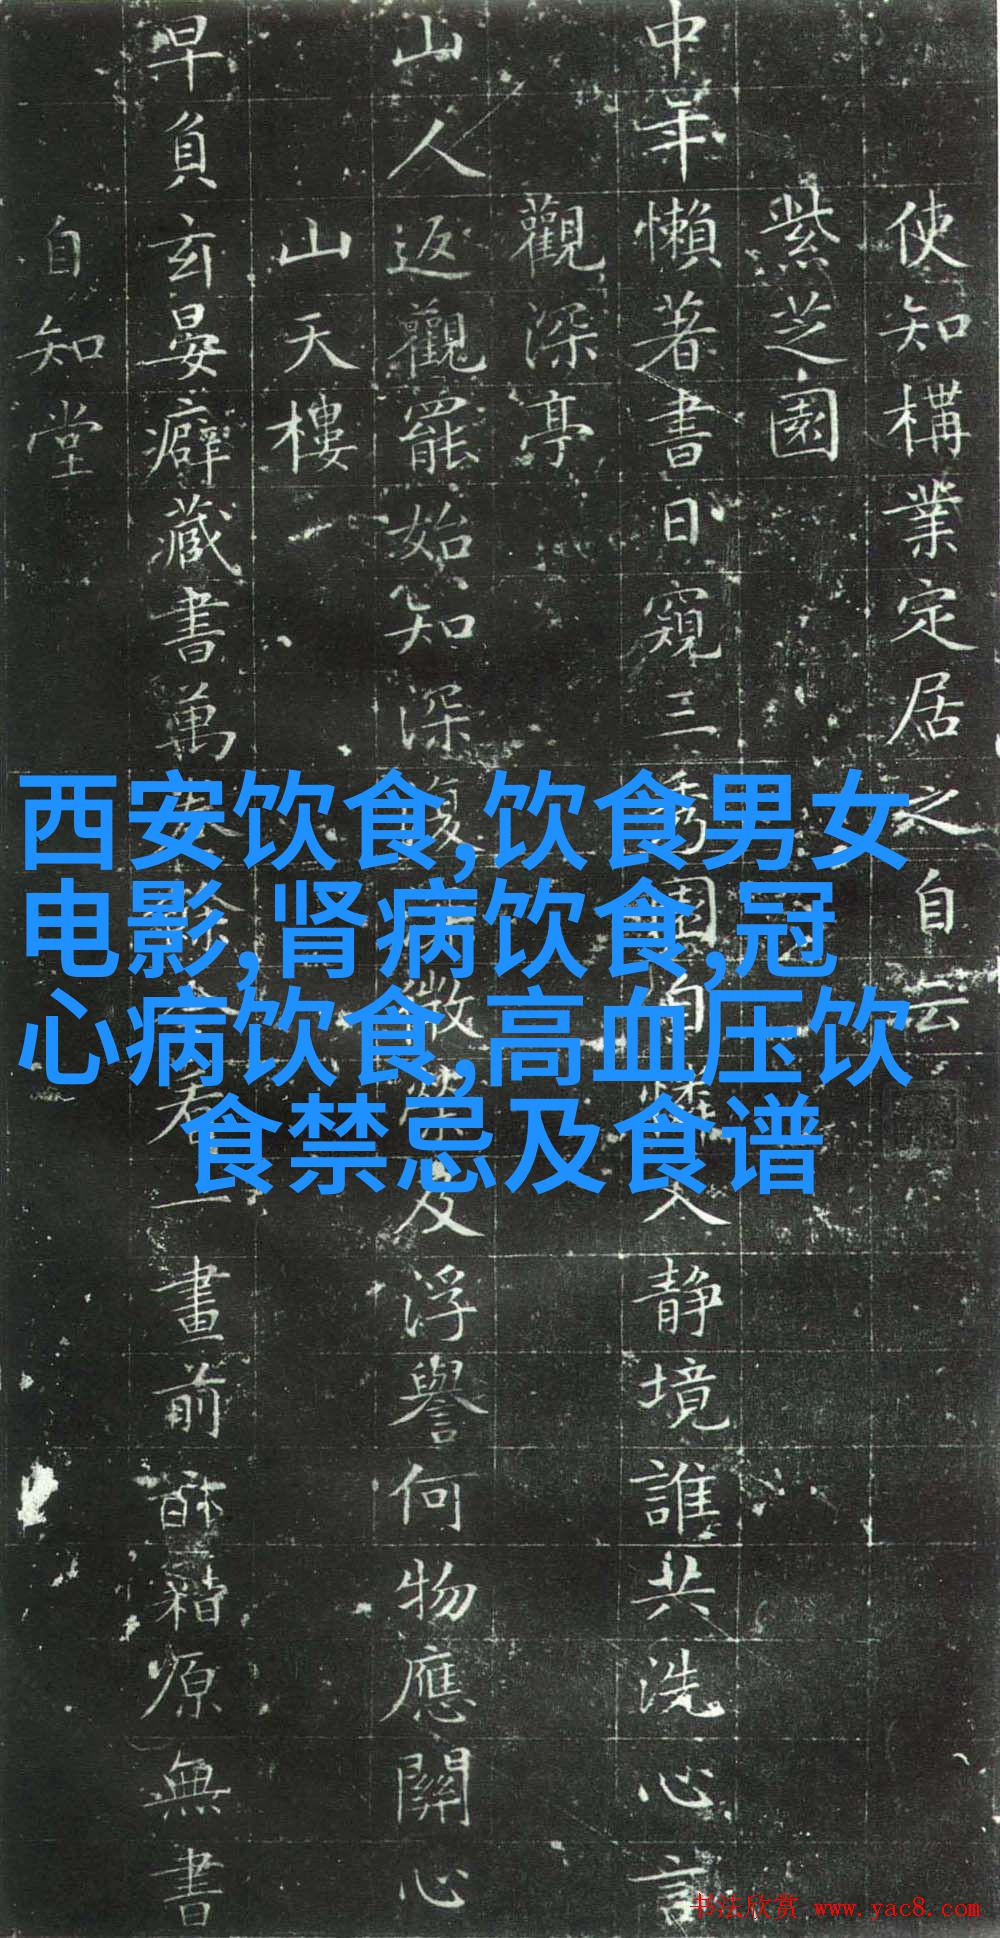 使知構業定居之自云
紫芝園
中年懶著書日窺三秀園文靜境誰共洗心言
觀深亭
山人返觀罷始知深復微榮及浮譽何物應關心
山天樓
早負玄晏癖藏書萬看一畫前籍原無書
自知堂
西安饮食,饮食男女
电影,肾病饮食,冠
心病饮食,高血压饮
食禁忌及食谱
书法欣赏 www.yac8.com